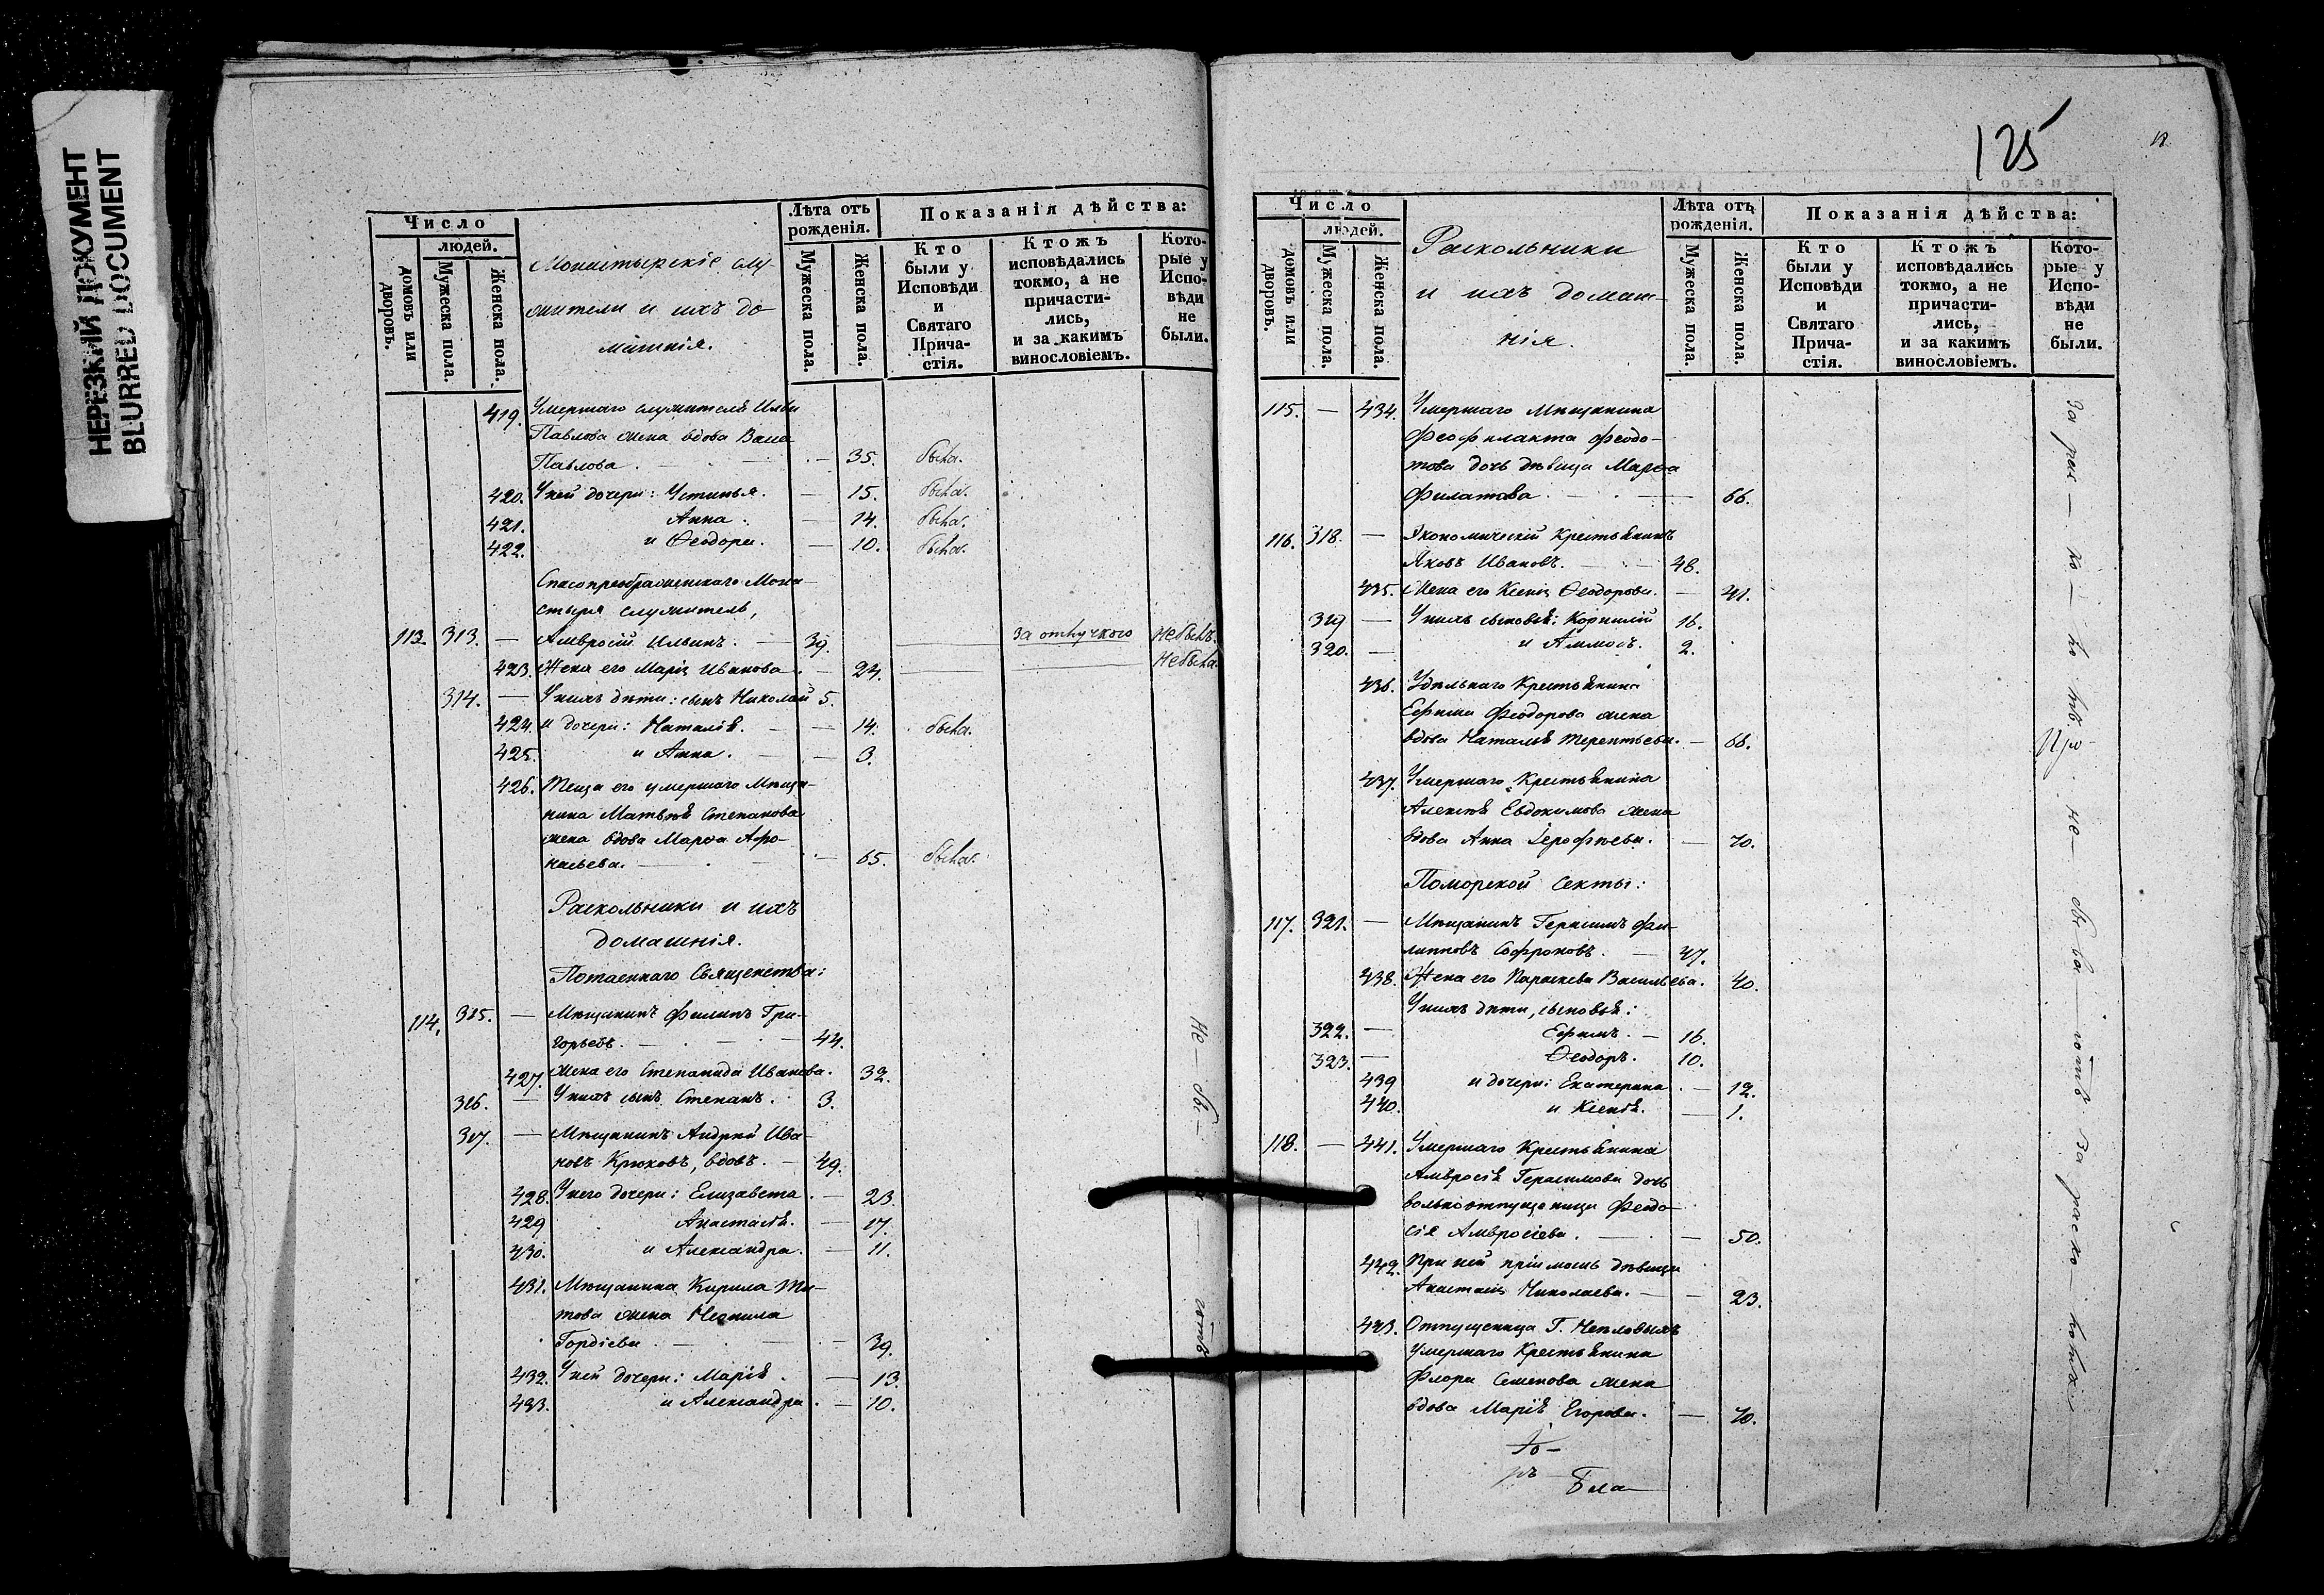 НЕРЕЗКИЙ ДОКУМЕНТ
BLURRED DOCUMENT
Число
людей.
домовъ или дворовъ.
Мужеска пола.
Женска пола.
Монастырскіе слу-
жители и ихъ до
машнія.
Лѣта отъ рожденія.
Мужеска пола.
Женска пола.
Показанія дѣйства:
Кто были у Исповѣди и Святаго Прича-стія.
Ктожъ исповѣдались токмо, а не причасти-лись, и за какимъ винословіемъ.
Кото-рые у Испо-вѣди не были.
419. Умершаго служителя Ильи
Павлова жена вдова Васса
Павлова. — 35. была.
420. У ней дочери: Устинья. — 15. была.
421. Анна. — 14. была.
422. и Ѳеодора. — 10. была.
Спасопреображенскаго Мона-
стыря служитель,
113. 313. — Амвросій Ильинъ. — 39. за отлучкою небылъ.
423. Жена его Марія Иванова. — 24. небыла.
314. — У нихъ дѣти: сынъ Николай 5.
424. и дочери: Наталія. — 14. была.
425. и Анна. — 3.
426. Теща его умершаго Мѣща-
нина Матвѣя Степанова
жена вдова Марѳа Афо-
насьева. — 65. была.
Раскольники и ихъ
домашнія.
Потаеннаго Священства:
114. 315. — Мѣщанинъ Филипъ Гри-
горьевъ. — 44.
427. Жена его Степанида Иванова. 32.
316. — У нихъ сынъ Степанъ. 3.
317. — Мѣщанинъ Андрей Ива-
новъ Крюковъ, вдовъ. — 49.
428. У него дочери: Елизавета. — 23.
429 Анастасія. — 17.
430. и Александра. — 11.
431. Мѣщанина Кирила Ти-
това жена Неонила
Гордіева. — 39.
432. У ней дочери: Марія. — 13.
433. и Александра. — 10.
не — бы —
125
Число
людей.
домовъ или дворовъ.
Мужеска пола.
Женска пола.
Раскольники
и ихъ домаш-
нія.
Лѣта отъ рожденія.
Мужеска пола.
Женска пола.
Показанія дѣйства:
Кто были у Исповѣди и Святаго Прича-стія.
Ктожъ исповѣдались токмо, а не причасти-лись, и за какимъ винословіемъ.
Кото-рые у Испо-вѣди не были.
115. — 434. Умершаго Мѣщанина
Феофилакта Феодо-
това дочь дѣвица Марѳа
Филатова. — 66.
116. 318. — Экономическій Крестьянинъ
Яковъ Ивановъ. — 48.
435. Жена его Ксенія Ѳеодорова. — 41.
319 — У нихъ сыновья: Корнилій 16.
320. — и Аммосъ. 2.
436. Удѣльнаго Крестьянина
Ефима Феодорова жена
вдова Наталья Терентьева. — 66.
437. Умершаго Крестьянина
Алексѣя Евдокимова жена
вдова Анна Іерофѣева. — 70.
Поморской секты:
117. 321. — Мѣщанинъ Герасимъ Фи-
липповъ Софроновъ. — 47.
438. Жена его Параскева Васильева. 40.
У нихъ дѣти, сыновья:
322. — Ефимъ. — 16.
323. — Ѳеодоръ. 10.
439 и дочери: Екатерина. — 12.
440. и Ксенія. — 1.
118. — 441. Умершаго Крестьянина
Амвросія Герасимова дочь
вольноотпущеница Феодо-
сія Амвросіева. — 50.
442. При ней пріимошъ дѣвица
Анастасія Николаева. — 23.
443. Отпущеница Г. Чепловыхъ
умершаго Крестьянина
Флора Семенова жена
вдова Марія Егорова. — 70.
Бла—
не — за раско —